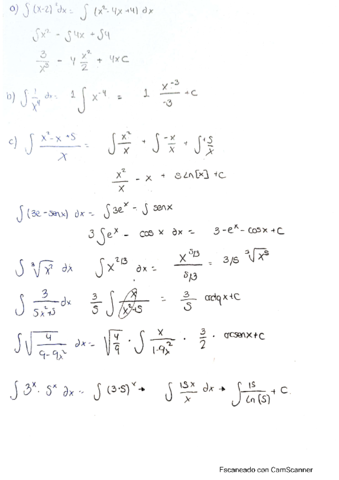 a) ∫(x-2)² dx = ∫(x²-4x+4) dx
∫x² - ∫4x + ∫4
3/x³ - 4 x²/2 + 4x C
b) ∫ 1/x⁴ dx = 1 ∫ x⁻⁴ = 1 x⁻³/-3 + C
c) ∫ (x²-x+5)/x = ∫ x²/x + ∫ -x/x + ∫ +5/x
x²/x - x + 5 Ln[x] + C
∫(3e - senx) dx = ∫3eˣ - ∫senx
3∫eˣ - cos x dx = 3-eˣ - cosx + C
∫ ³√x² dx ∫x^2/3 dx = x^5/3 / 5/3 = 3/5 ³√x⁵
∫ 3/(5x²+5) dx 3/5 ∫ x/(x²+5) = 3/5 arctgx + C
∫ √(4/(9-9x²)) dx = √(4/9) · ∫ x/(1-9x²) · 3/2 · arcsenx + C
∫ 3ˣ · 5ˣ dx = ∫ (3·5)ˣ → ∫ 15x/x dx → ∫ 15/Ln(5) + C
Escaneado con CamScanner